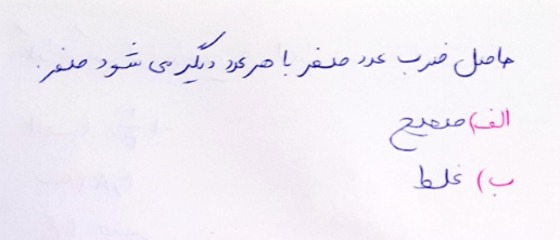 حاصل ضرب عدد صفر با هر عدد دیگر می شود صفر.
الف) صحیح
ب) غلط